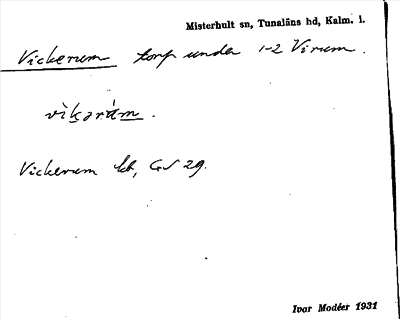 Misterhult sn, Tunaläns hd, Kalm. l.
Vickerum torp under 1-2 Virum.
vìkəràm.
Vickerum kb, GV 29.
Ivar Modéer 1931